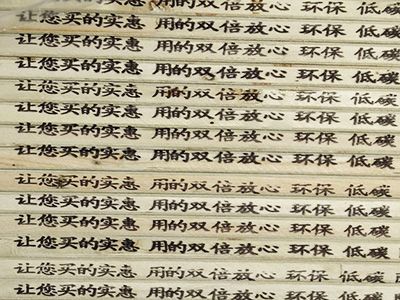 让您买的实惠 用的双倍放心 环保 低碳
让您买的实惠 用的双倍放心 环保 低碳
让您买的实惠 用的双倍放心 环保 低碳
让您买的实惠 用的双倍放心 环保 低碳
让您买的实惠 用的双倍放心 环保 低碳
让您买的实惠 用的双倍放心 环保 低碳
让您买的实惠 用的双倍放心 环保 低碳
让您买的实惠 用的双倍放心 环保 低碳
让您买的实惠 用的双倍放心 环保 低碳
让您买的实惠 用的双倍放心 环保 低碳
让您买的实惠 用的双倍放心 环保 低碳
让您买的实惠 用的双倍放心 环保 低碳
让您买的实惠 用的双倍放心 环保 低碳
让您买的实惠 用的双倍放心 环保 低碳